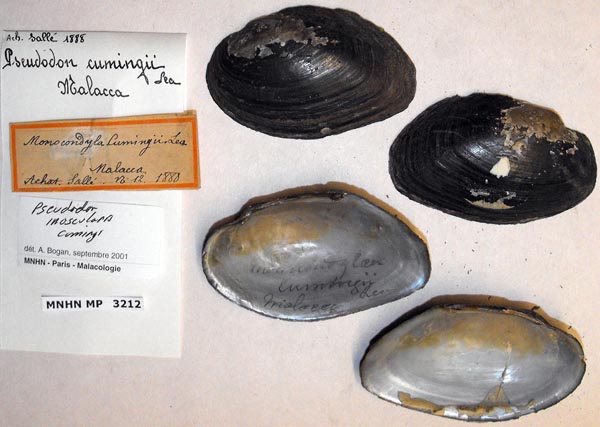 Ach. Sallé 1888
Pseudodon cumingii
Lea
Malacca
Monocondyla Cumingii Lea
Malacca
Achat. Sallé. 12. 1888
Pseudodon
inoscularis
cumingi
dét. A. Bogan, septembre 2001
MNHN - Paris - Malacologie
MNHN MP 3212
Monocondylaea
Cumingii
Malacca Lea